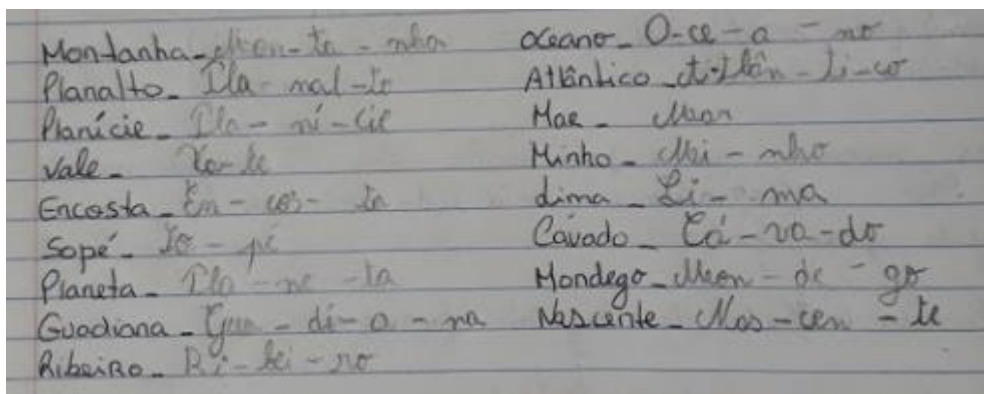 Montanha - Mon - ta - nha
Planalto - Pla - nal - to
Planície - Pla - ní - cie
Vale - Va - le
Encosta - En - cos - ta
Sopé - So - pé
Planeta - Pla - ne - ta
Guadiana - Gua - di - a - na
RibeiRo - Ri - bei - ro
Oceano - O - ce - a - no
Atlântico - A - tlân - ti - co
MaR - Mar
Minho - Mi - nho
Lima - Li - ma
Cávado - Cá - va - do
Mondego - Mon - de - go
Nascente - Nas - cen - te